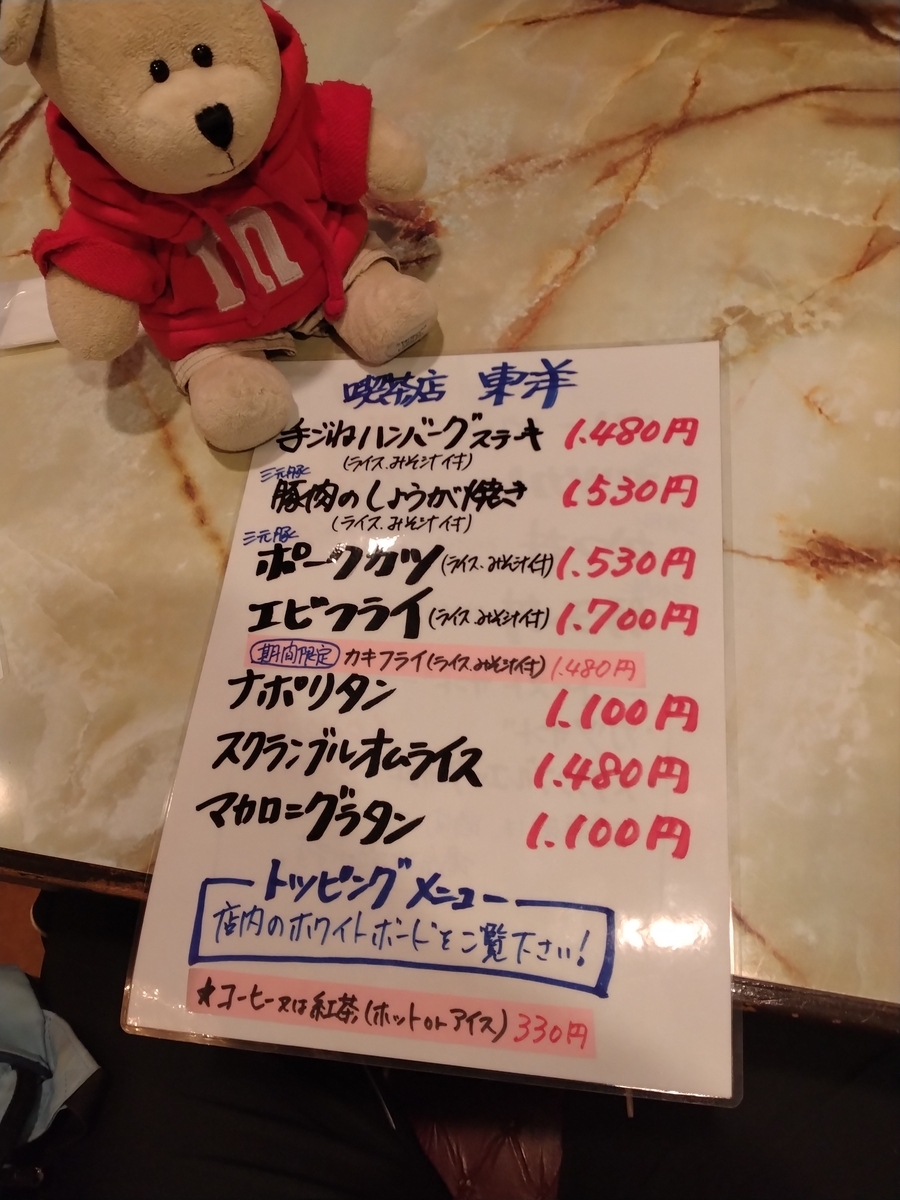 10
喫茶店 東洋
手ごねハンバーグステーキ 1.480円
(ライス.みそ汁付)
三元豚
豚肉のしょうが焼き 1.530円
(ライス.みそ汁付)
三元豚
ポークカツ(ライス.みそ汁付) 1.530円
エビフライ(ライス.みそ汁付) 1.700円
期間限定 カキフライ(ライス.みそ汁付) 1.480円
ナポリタン 1.100円
スクランブルオムライス 1.480円
マカロニグラタン 1.100円
トッピングメニュー
店内のホワイトボードをご覧下さい!
★コーヒー又は紅茶(ホットorアイス) 330円